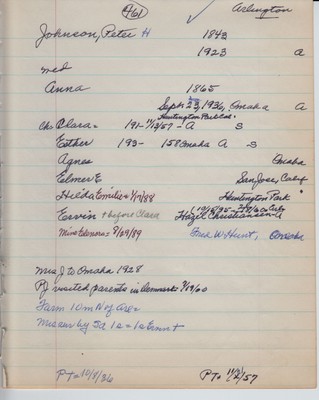 461
Arlington
Johnson, Peter H 1843
1923 A
med
Anna 1865
Sept 23, 1936, Omaha A
Huntington Park Cal.
Ch: Clara = 191- 11/13/57 - A S
Esther 193- 158 Omaha A S
Agnes Omaha
Elmer E San Jose, Calif
Hilda Emilie = 1/17/88 Huntington Park
Ervin + before Clara Hazel Christiansen - A
Miss Elenora = 8/29/89 Fred W Hunt, Omaha
Mrs J to Omaha 1928
PJ visited parents in Denmark = 3/19/00
Farm 10 m N of Ar
by Ia
PT = 10/8/36 PT = 11/21/57